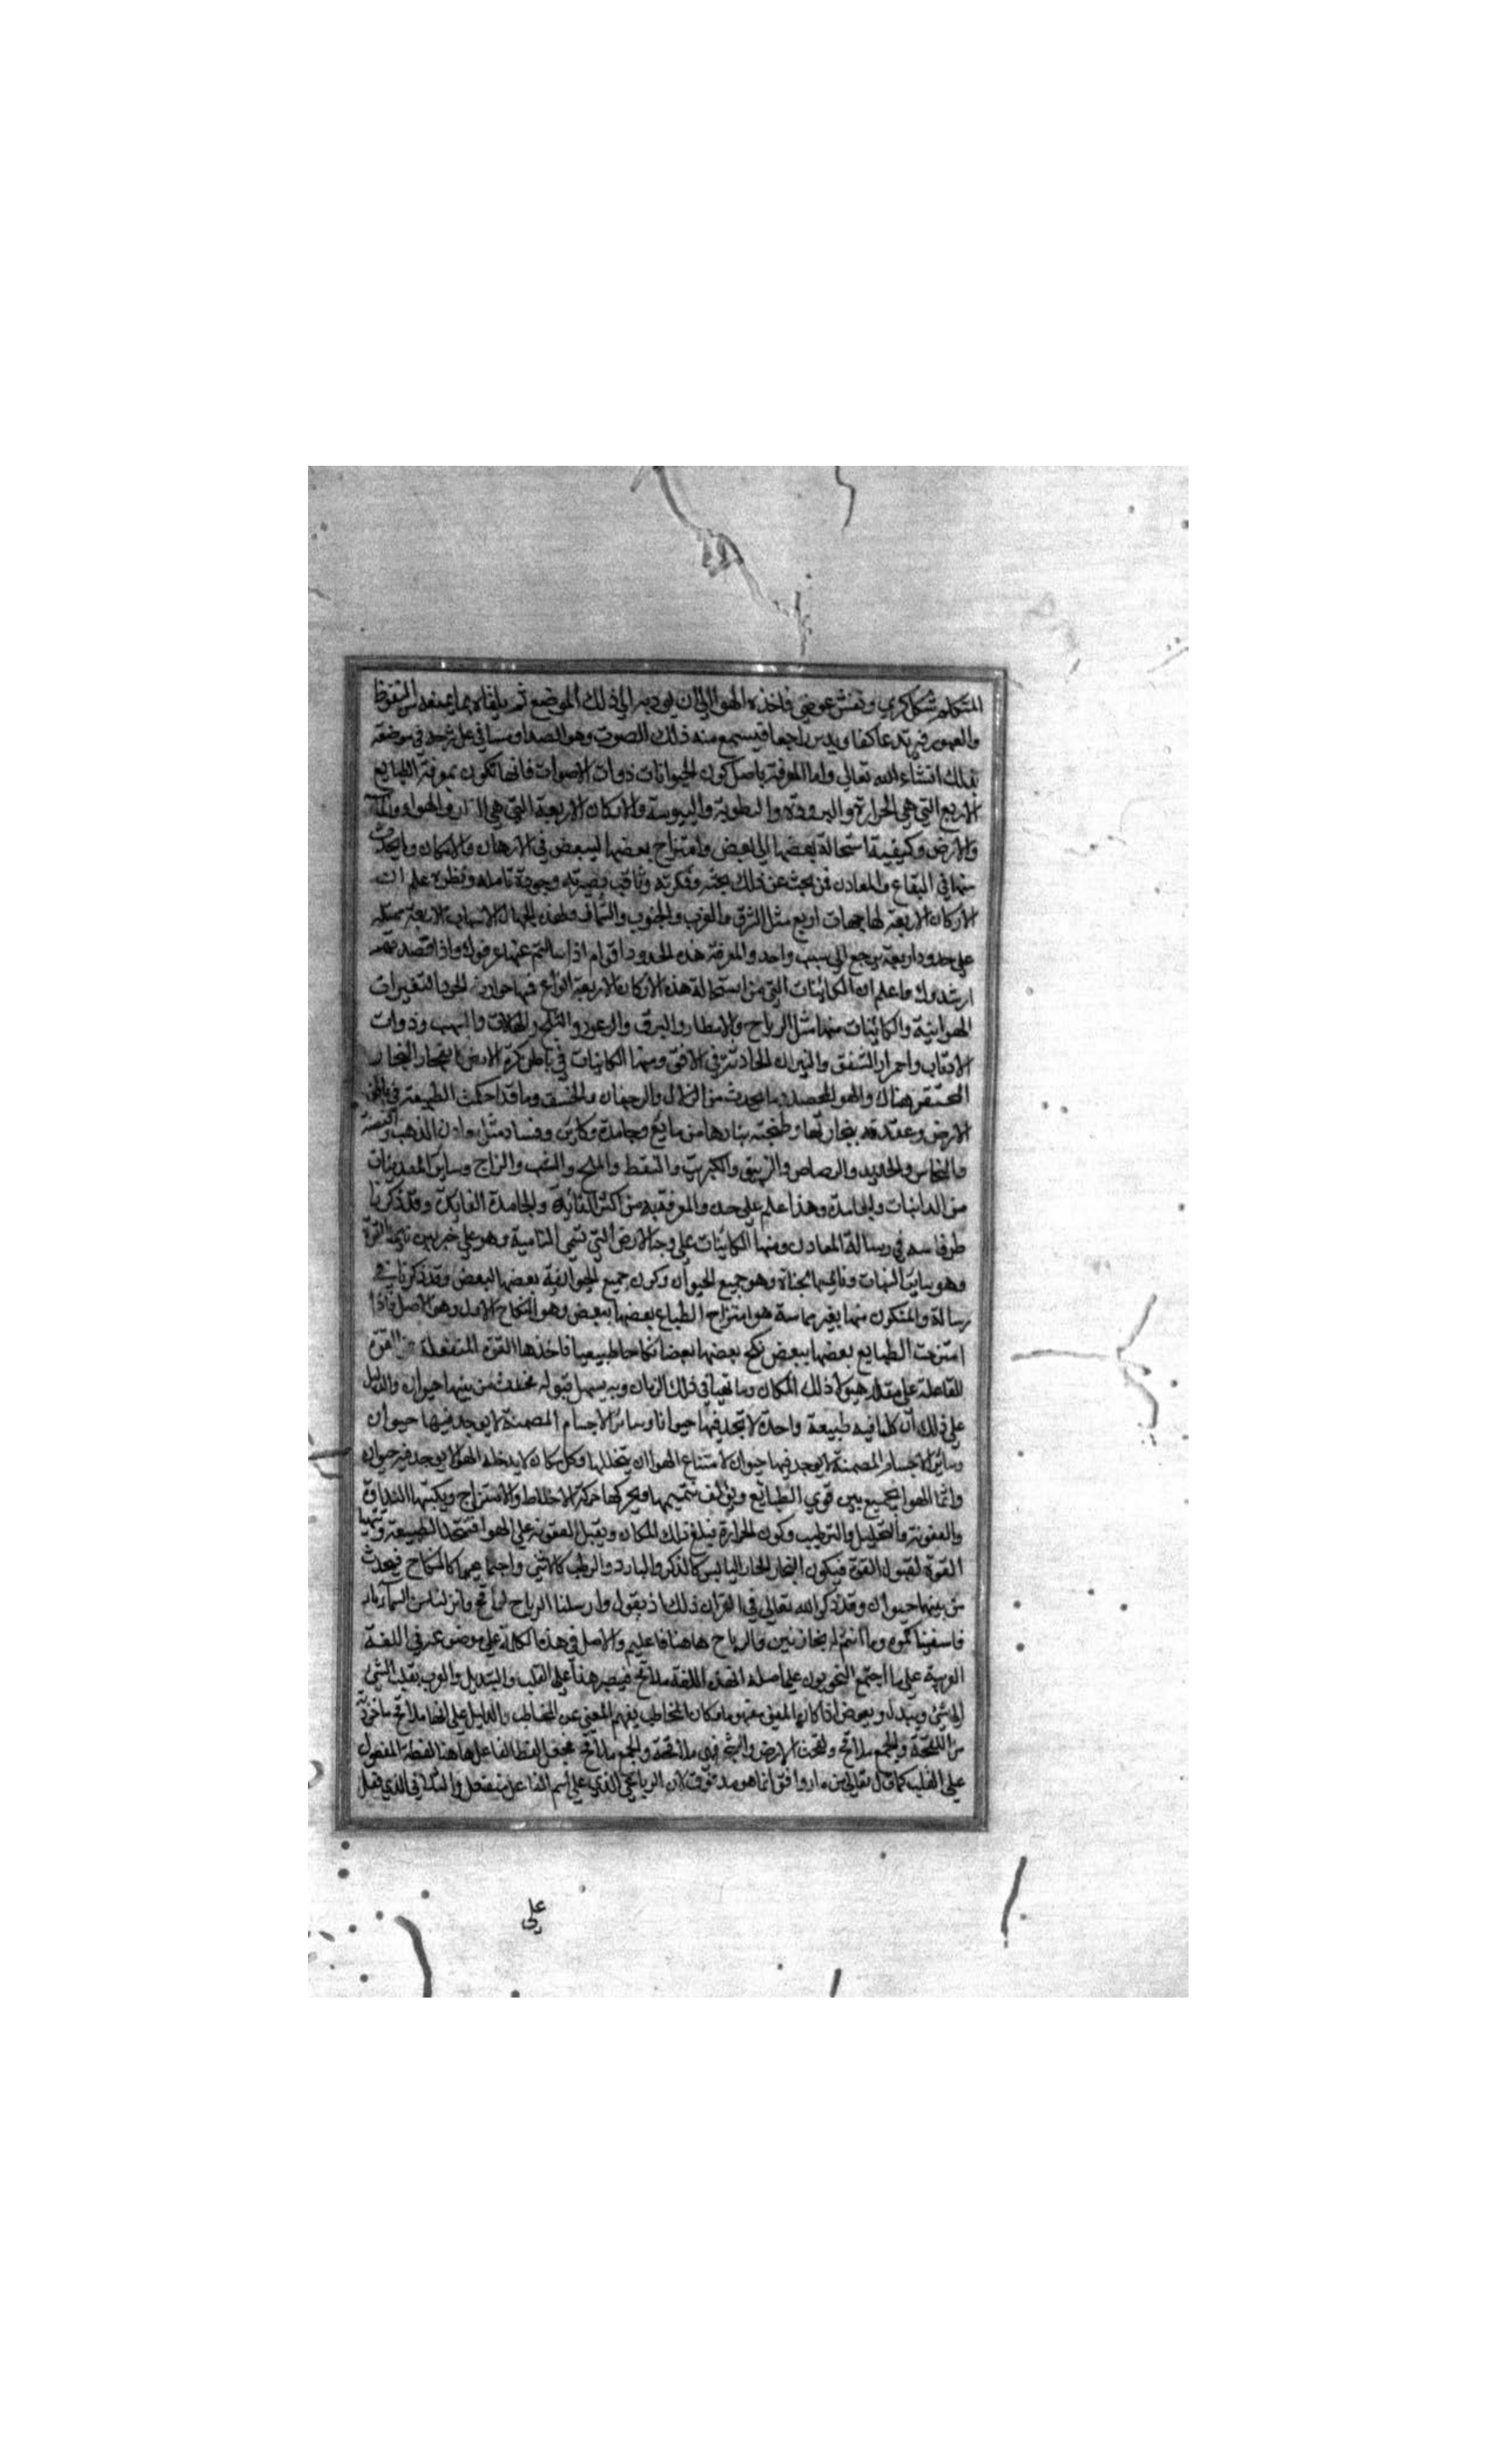 المتكلم شكل كري ونفس عرضي فاخذه الهوا الي ان يودبه الي ذلك الموضع ثم يلقاه ما يمنعه من النفوذ
فيرتد عاكفا راجعا فيسمع منه ذلك الصوت وهو الصدا وسنا في علي شرحه في موضعه
بعلك انشاء الله تعالي واما المعرفة باصل كون الحيوانات ذوات الاصوات فانها تكون بمعرفة الطبايع
الاربع التي هي الحرارة والبرودة والرطوبة واليبوسة والاركان الاربعة التي هي النار والهواء والماء
والارض وكيفية استحالة بعضها الي بعض وامتزاج بعضها ببعض في الازمان والامكان وما يحدث
منها في البقاع والمعادن فمن بحث عن ذلك بحثه وفكرته وثاقب بصيرته وجودة تامله ونظره علم ان
الاركان الاربعة لها جهات اربع مثل الشرق والغرب والجنوب والشمال ولهذه الجهات الاسباب الاربعة
علي حدود اربعة يرجع الي سبب واحد والمعرفة هذه الحدود اقوام اذا سالتهم عنها عرفوك واذا قصدتهم
ارشدوك واعلم ان الكائنات التي من استحالة هذه الاركان الاربعة انواع فمنها حوادث الجو والتغيرات
الهوائية والكائنات منها مثل الرياح والامطار والبرق والرعود والثلج والهالات والشهب وذوات
الاذناب واحمرار الشفق والنيران الحادثة في الافق ومنها الكائنات في باطن كرة الارض البخار
المحتقن هناك والهوا المحصور وما يحدث من الزلازل والرجفان والخسف وما قد احكمت الطبيعة في باطن
الارض وعقدته بخاراتها وطبخته بنارها من مايع وجامد وكاين وفساد مثل معادن الذهب والفضة
والنحاس والحديد والرصاص والزيبق والكبريت والنفط والملح والشب والزاج وساير المعدنيات
من الدائبات والجامدة وهذا علم علي حده والمعرفة به من اكثر الفائدة والجامدة الفائدة وقد ذكرنا
طرفا منه في رسالة المعادن ومنها الكائنات علي وجه الارض التي تسمي النامية وهو علي ضربين
وهو ساير النبات وهو جميع الحيوان وكون جميع الحيوان بعضها لبعض وقد ذكرنا في
رسالة والمتكون منها بغير مماسة هو امتزاج الطباع بعضها ببعض وهو النكاح الاول وهو الاصل فاذا
امتزجت الطبايع بعضها ببعض نكح بعضها بعضا نكاحا طبيعيا فاخذها القوة المنفعلة من القوة
الفاعلة علي مقدار هيولا ذلك المكان وما تهيا في ذلك الزمان وبه يسهل قبوله فحدث من بينهما حيوان والدليل
علي ذلك ان كلما فيه طبيعة واحدة لا تجد فيها حيوانا وسائر الاجسام المصمتة لا يوجد فيها حيوان
وسائر الاجسام المصمتة لا يوجد فيها حيوان لامتناع الهوا ان يتخللها وكل مكان لا يدخله الهوا لا يوجد فيه حيوان
وانما الهوا يجمع بين قوي الطبائع ويؤلف بينها ويحركها حركة الاختلاط والامتزاج ويكسبها
والعفونة والتحليل والترطيب وكون الحرارة ذلك المكان ويقبل العفونة علي الهوا فتتحد الطبيعة وتتهيا
القوة لقبول القوة فيكون البخار الحار اليابس كالذكر والبارد والرطب كالانثي واجتماعهما كالنكاح فيحدث
من بينهما حيوان وقد ذكر الله تعالي في القران ذلك اذ يقول وارسلنا الرياح لواقح وانزلنا من السماء ماء
فاسقيناكموه وما انتم له بخازنين والرياح هاهنا فاعلة والاصل في هذه الكلمة علي موضوعه في اللغة
العربية علي ما اجتمع النحويون علي اصله اهذه اللغة ملاقح فيصير هنا علي القلب والتبديل والعرب تقلب الشئ
الي شئ ويبدل ويعوض اذا كان المعني مفهوما وكان المخاطب يفهم المعني عن المخاطب والدليل علي انها ملاقح ماخوذ
من اللقحة والجمع ملاقح ولقحت الارض والشجر فهي ملاقحة والجمع ملاقح فجعل لفظ الفاعل هاهنا لفظة المفعول
علي القلب كما قال تعالي من ماء دافق انما هو مدفوق لان الرباعي الذي علي اسم الفاعل منه مفعل والثلاثي الذي فعل
علي